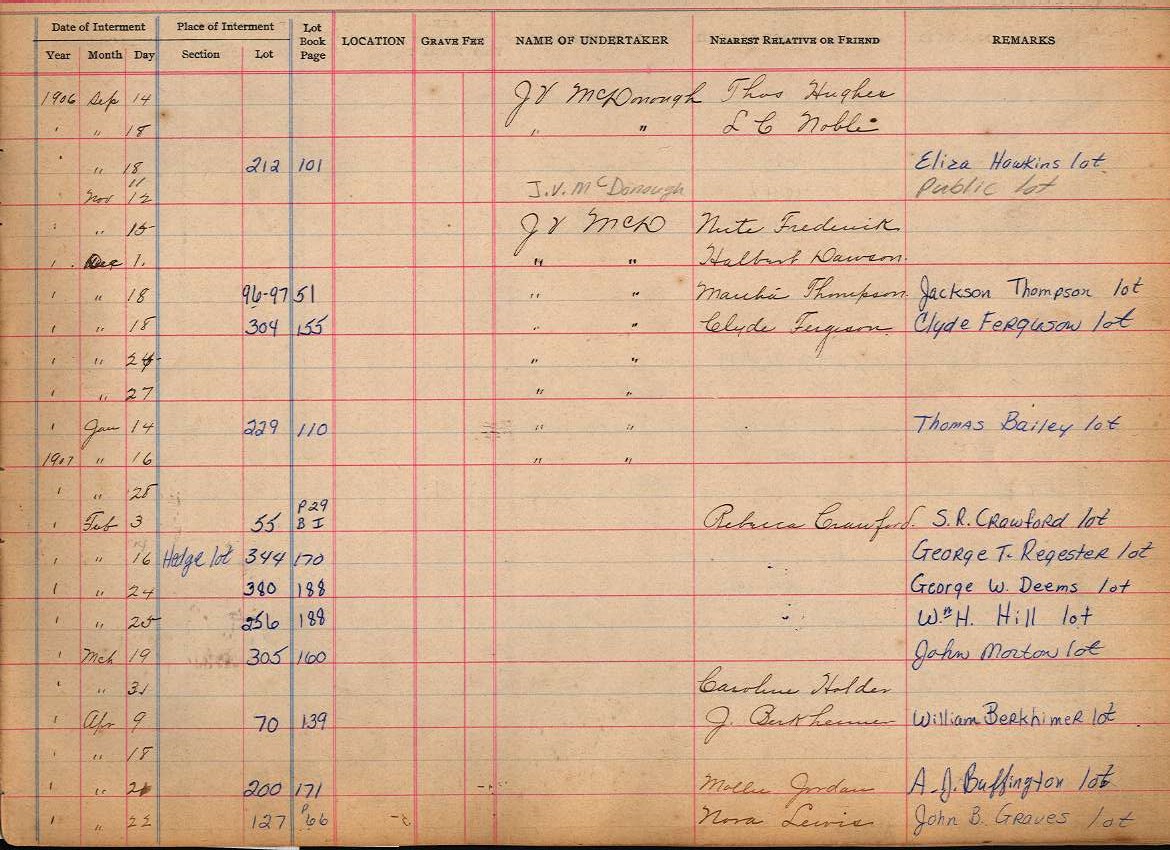 Date of Interment Place of Interment Lot Book Page LOCATION GRAVE FEE NAME OF UNDERTAKER NEAREST RELATIVE OR FRIEND REMARKS
Year Month Day Section Lot
1906 Sep 14 J V McDonough Thos Hughes
' " 18 " " L C Noble
' " 18 212 101 Eliza Hawkins lot
" 11
Nov 12 J.V. McDonough Public lot
' " 15 J V McD Nute Frederick
' Dec 1. " " Halbert Dawson.
' " 18 96-97 51 " " Martha Thompson. Jackson Thompson lot
' " 18 304 155 " " Clyde Ferguson Clyde Ferguson lot
' " 24 " "
' " 27 " "
' Jan 14 229 110 " " Thomas Bailey lot
1907 " 16 " "
' " 28
' Feb 3 55 P29 B I Rebecca Crawford. S.R. Crawford lot
' " 16 Hedge lot 344 170 George T. Regester lot
' " 24 380 188 George W. Deems lot
' " 25 256 188 Wm H. Hill lot
' Mch 19 305 160 John Morton lot
' " 31 Caroline Holder
' Apr 9 70 139 J. Berkheimer William Berkhimer lot
' " 18
' " 21 200 171 Mollie Jordan A.J. Buffington lot
' " 22 127 P 66 Nora Lewis John B. Graves lot